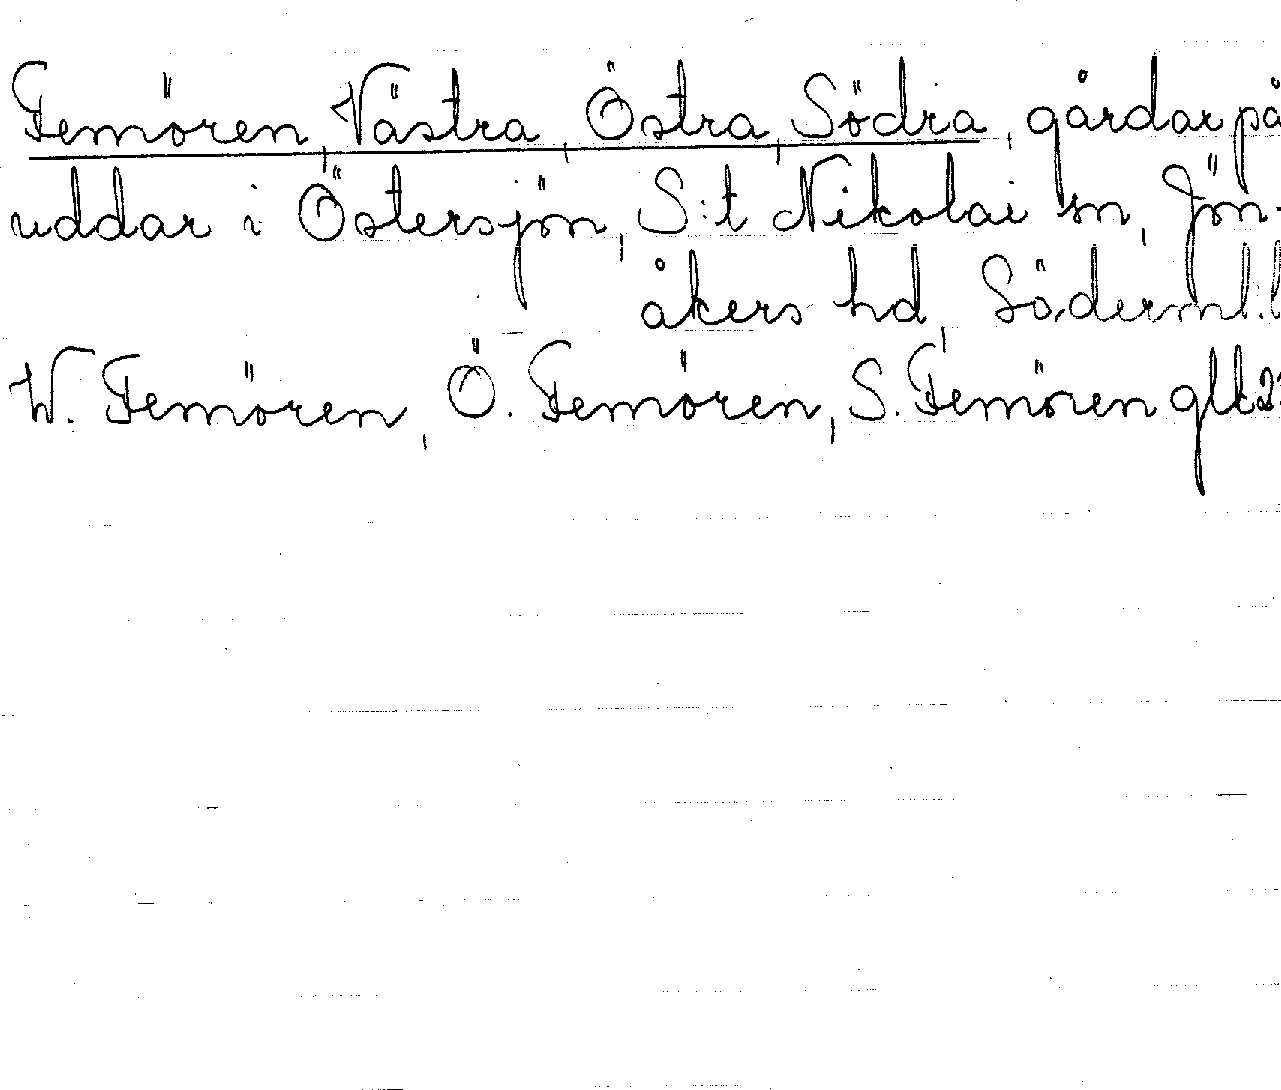 Femören, Västra, Östra, Södra, gårdar på
uddar i Östersjön, S:t Nikolai sn, Jön-
åkers hd, Söderml. l
W. Femören, Ö. Femören, S. Femören glk